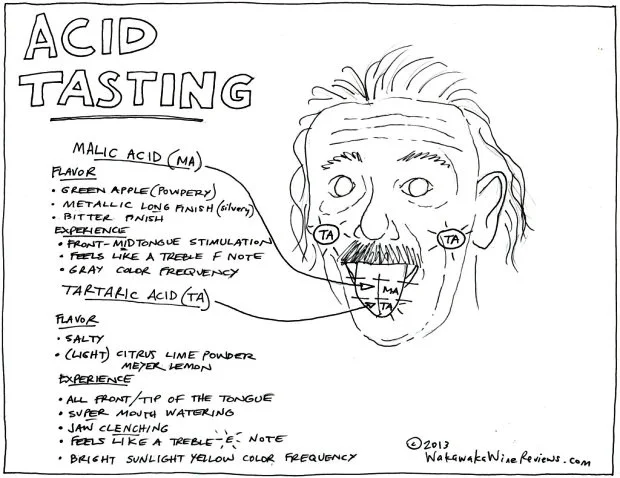 ACID
TASTING
MALIC ACID (MA)
FLAVOR
• GREEN APPLE (POWDERY)
• METALLIC LONG FINISH (silvery)
• BITTER FINISH
EXPERIENCE
• FRONT-MIDTONGUE STIMULATION
• FEELS LIKE A TREBLE F NOTE
• GRAY COLOR FREQUENCY
TARTARIC ACID (TA)
FLAVOR
• SALTY
• (LIGHT) CITRUS LIME POWDER
MEYER LEMON
EXPERIENCE
• ALL FRONT/TIP OF THE TONGUE
• SUPER MOUTH WATERING
• JAW CLENCHING
• FEELS LIKE A TREBLE E NOTE
• BRIGHT SUNLIGHT YELLOW COLOR FREQUENCY
TA
TA
MA
TA
© 2013
WakawakaWineReviews.com